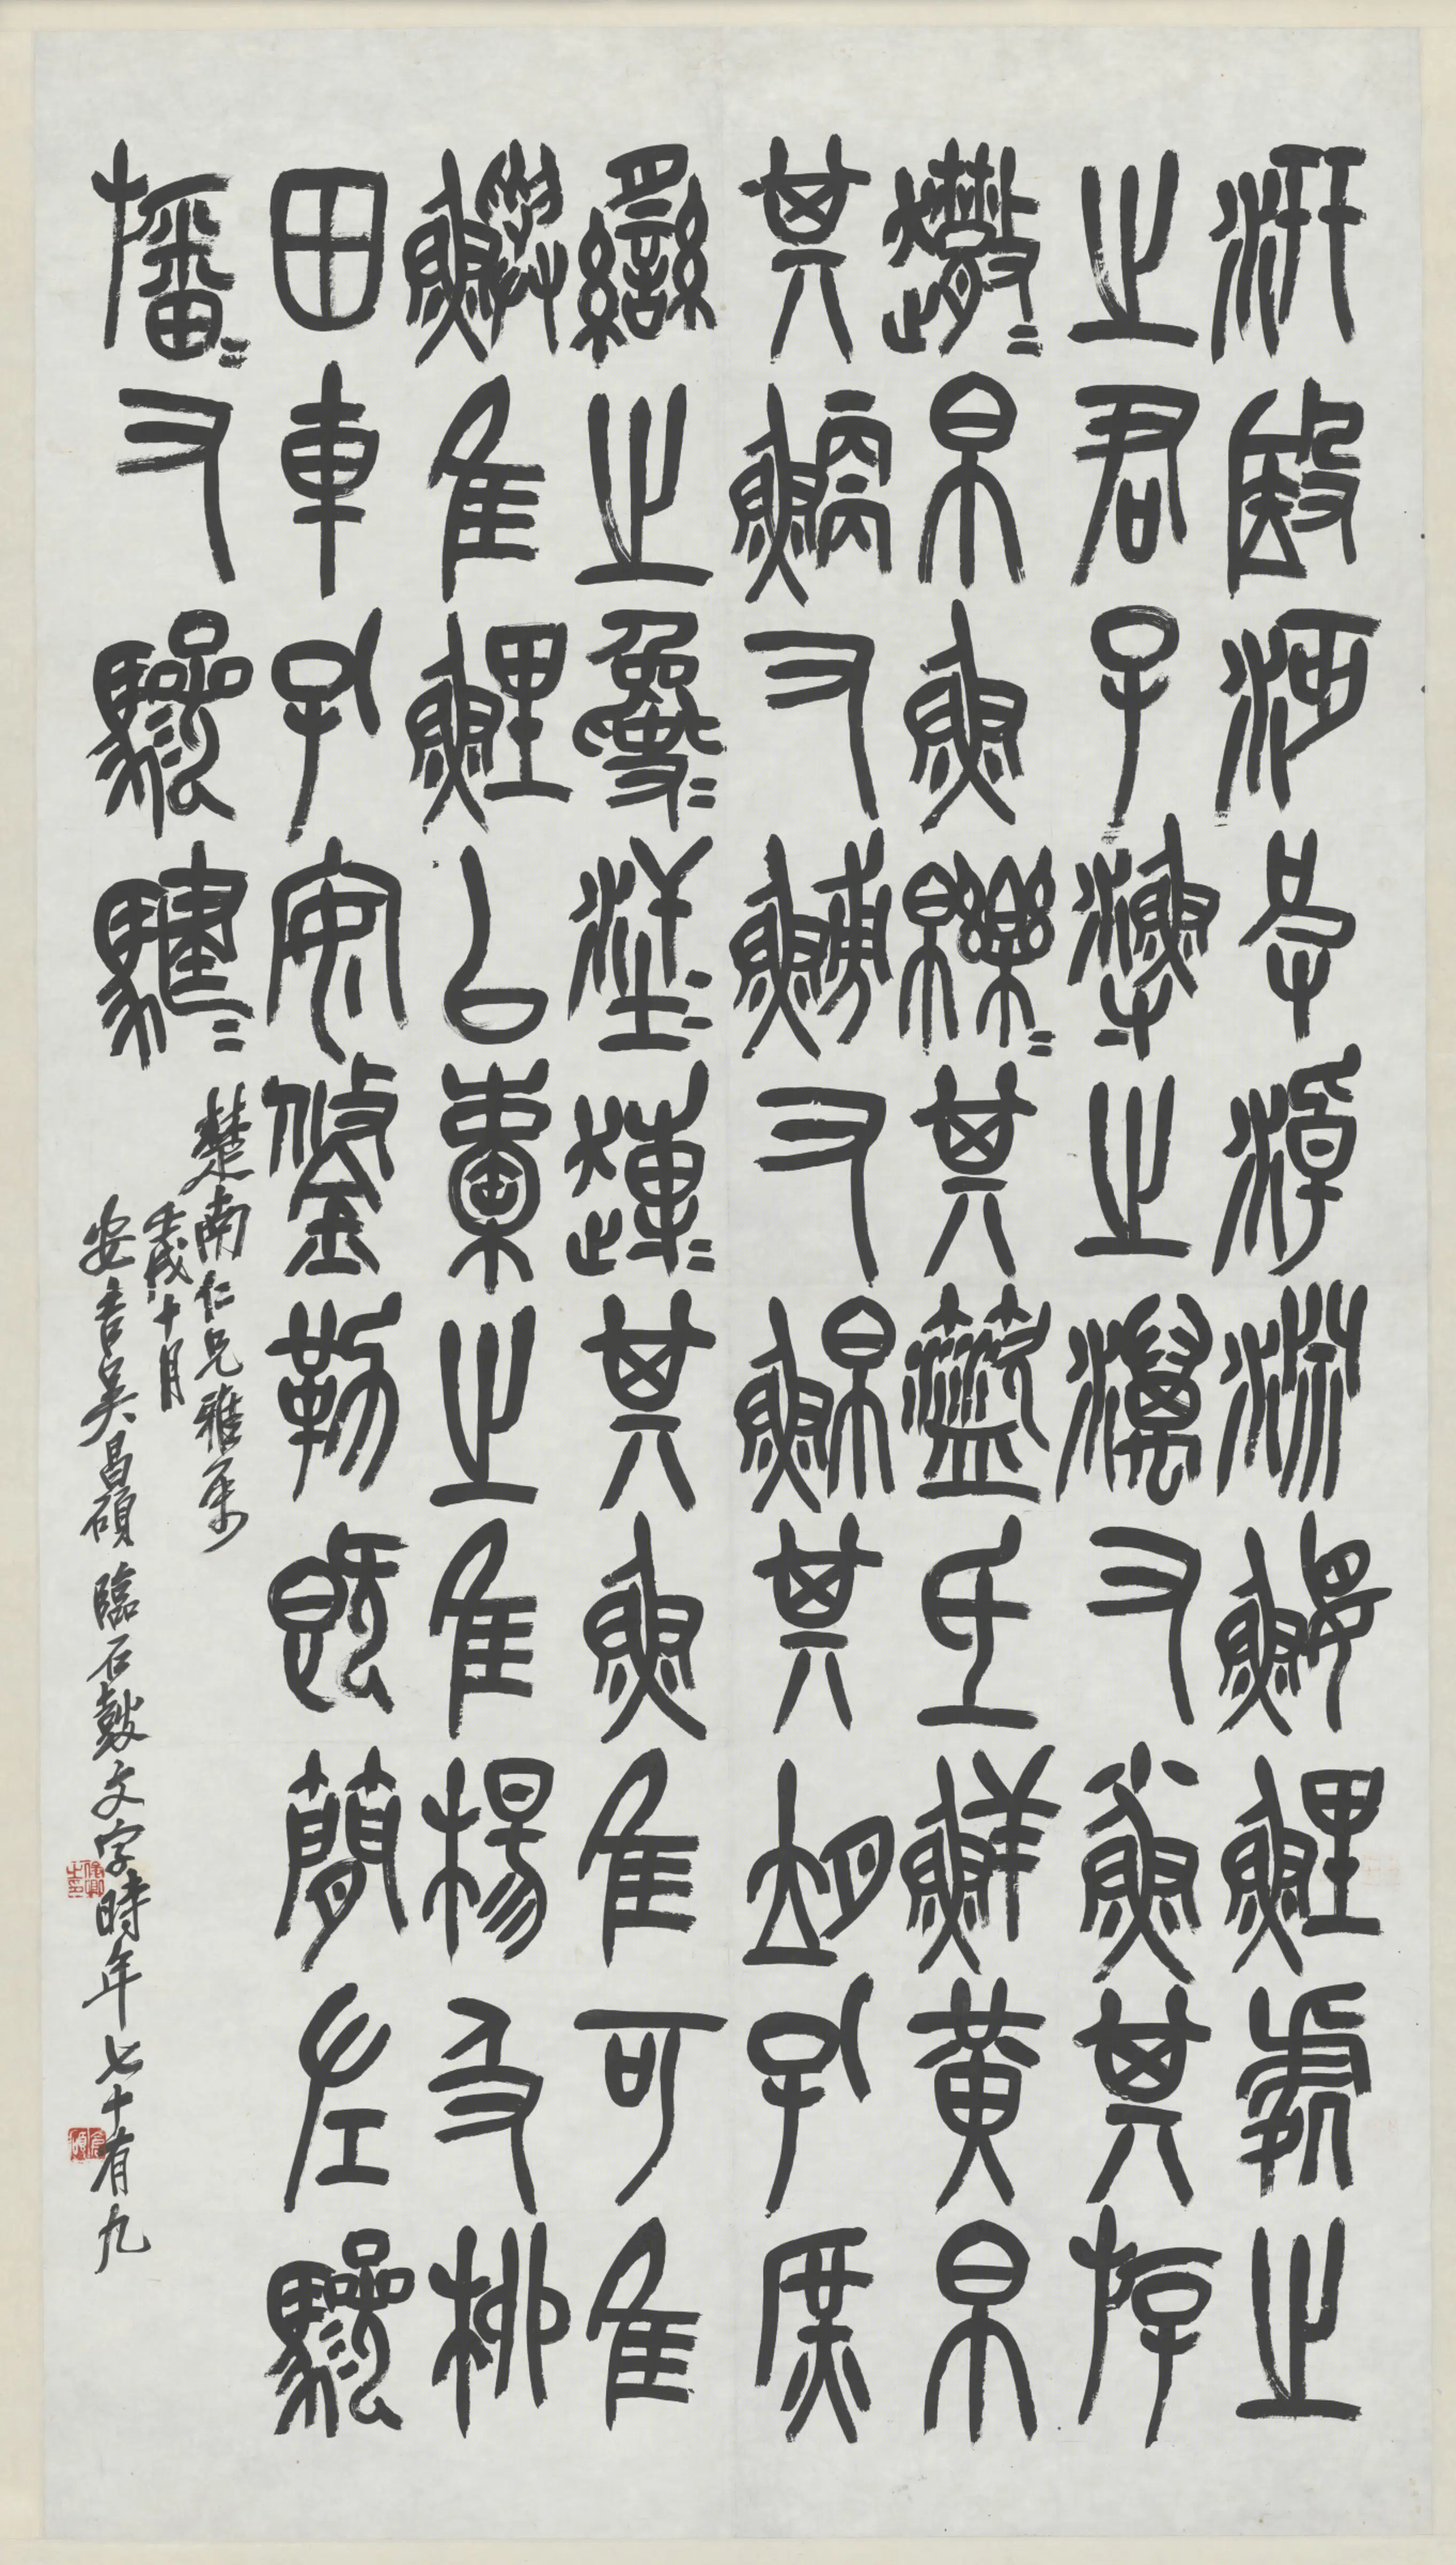 汧殹沔皮淖淵鰋鯉處之
之君子漁之澫又鯊其斿
趣趣帛魚皪皪其盜氐鮮黃帛
其鯾又鰟又鮊其孔庶
臠之夐夐其魚隹可隹
鱮隹鯉以橐之隹楊及柳
田車孔安鋚勒既簡左驂
旛旛又驂騝騝
楚南仁兄雅屬
壬戌十月
安吉吳昌碩臨石鼓文字時年七十有九